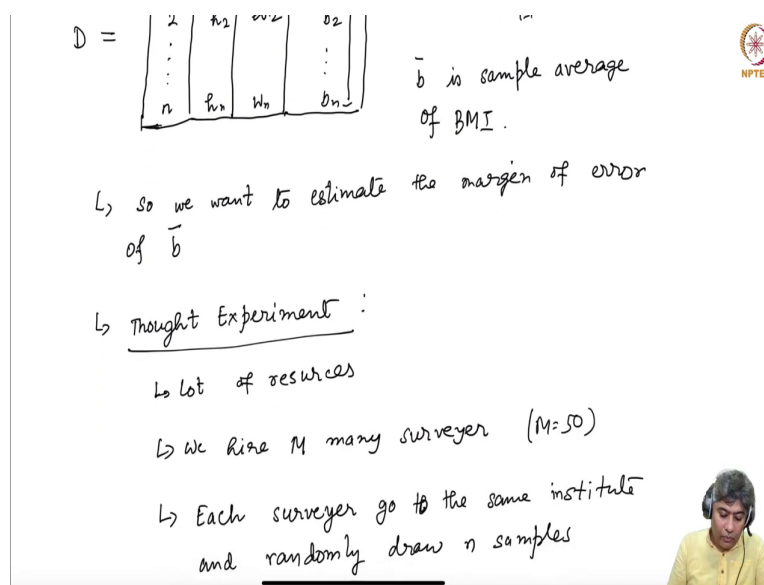 D =
2 h2 w2 b2
n hn wn bn
b̄ is sample average
of BMI.
NPTE
↳ so we want to estimate the margin of error
of b̄
↳ Thought Experiment :
↳ Lot of resurces
↳ we hire M many surveyer (M=50)
↳ Each surveyer go to the same institute
and randomly draw n samples